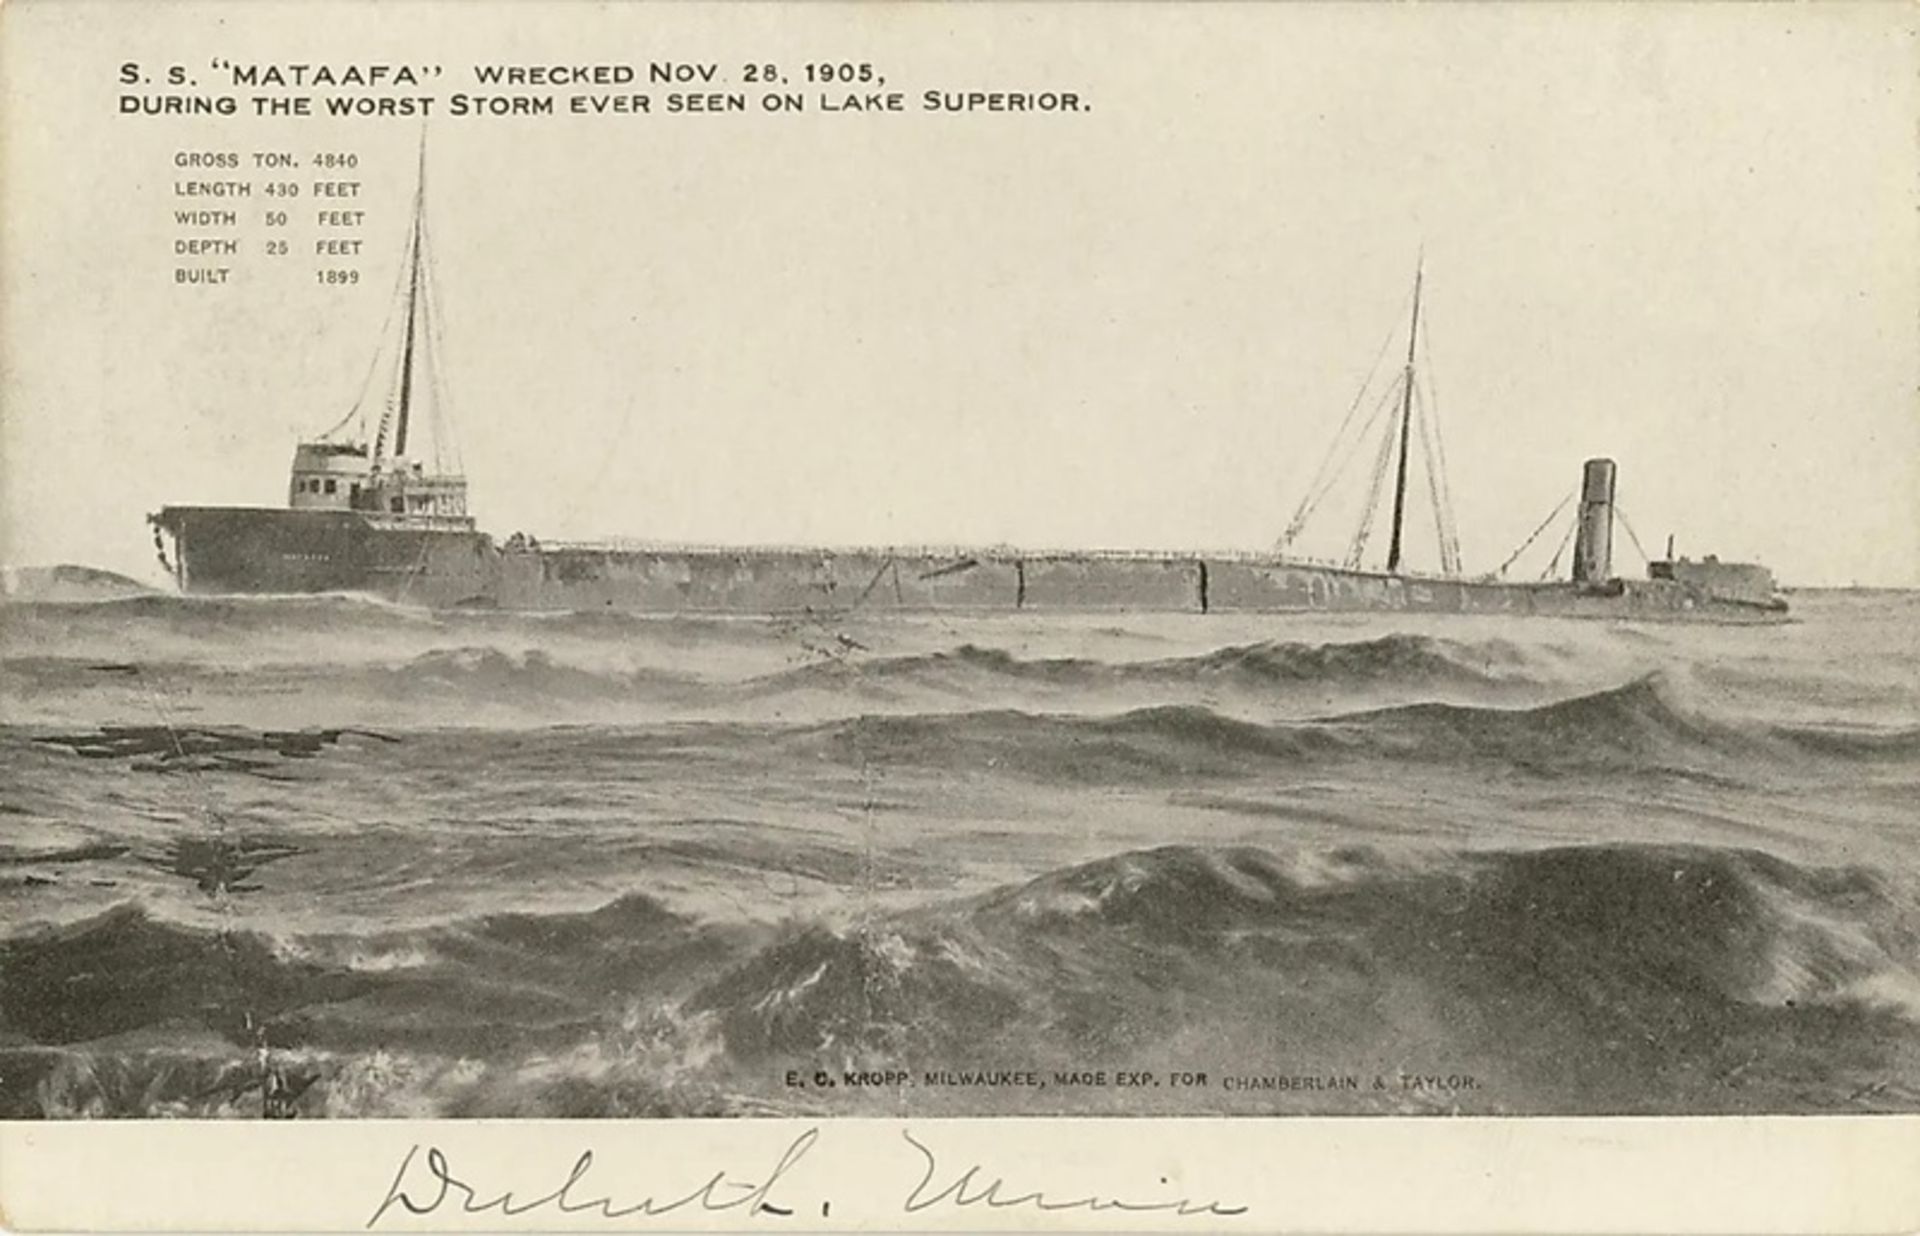 S. S. “MATAAFA” WRECKED NOV. 28, 1905,
DURING THE WORST STORM EVER SEEN ON LAKE SUPERIOR.
GROSS TON. 4840
LENGTH 430 FEET
WIDTH 50 FEET
DEPTH 25 FEET
BUILT 1899
MATAAFA
E. C. KROPP, MILWAUKEE, MADE EXP. FOR CHAMBERLAIN & TAYLOR.
Duluth, Minn